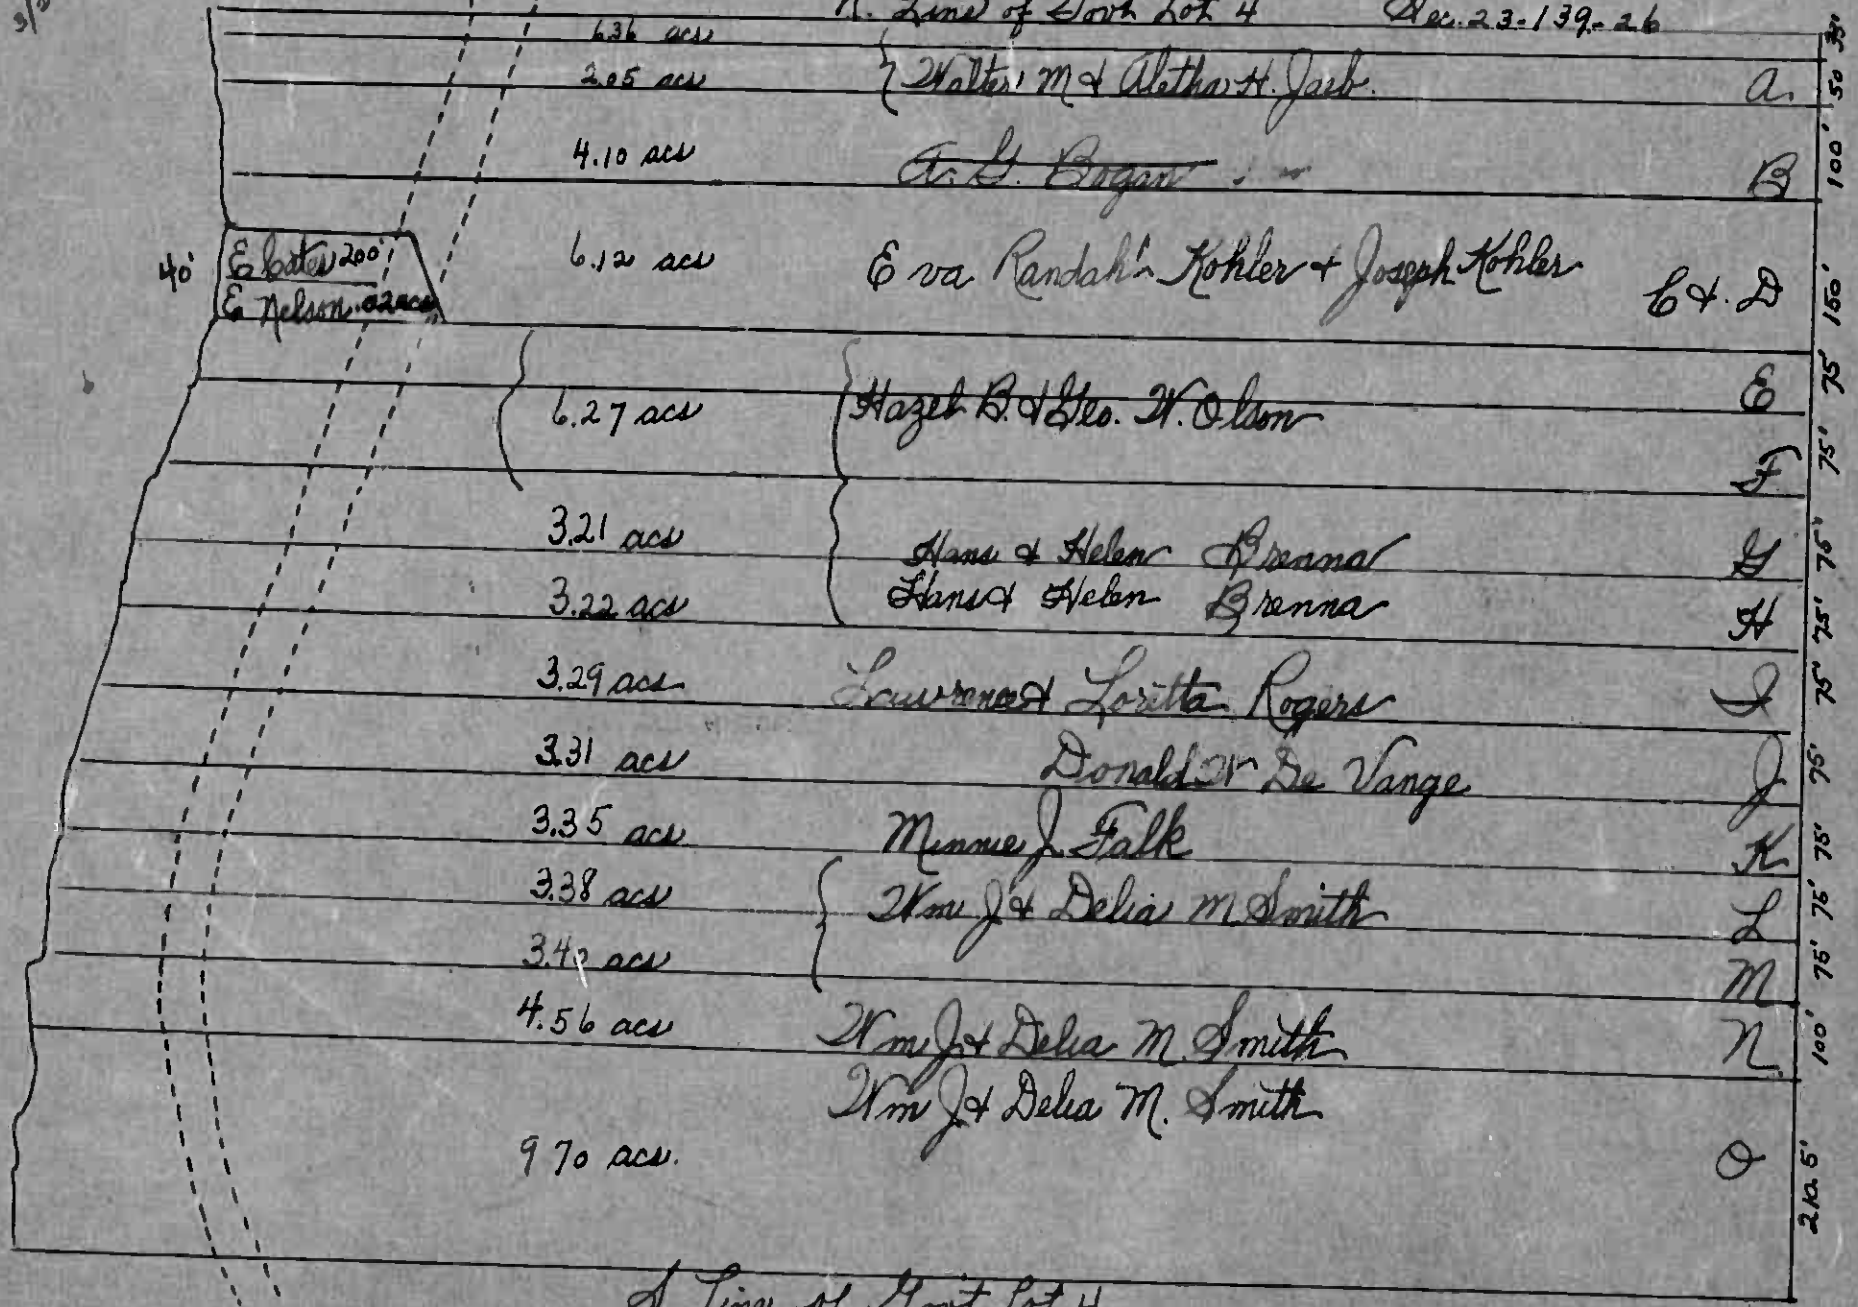 N. Line of Govt Lot 4 Sec. 23-139-26
6.36 acs 33'
2.05 acs Walter M & Aletha H. Jaeb. A. 50'
4.10 acs A. G. Bogan B 100'
40' E Cates 200' 6.12 acs Eva Randah'n Kohler & Joseph Kohler C & D 150'
E Nelson .02 acs
E 75'
6.27 acs Hazel B. & Geo. W. Olson
F 75'
3.21 acs Hans & Helen Brenna G 75'
3.22 acs Hans & Helen Brenna H 75'
3.29 acs Lawrence & Loritta Rogers I 75'
3.31 acs Donald W De Vange J 75'
3.35 acs Minnie J. Falk K 75'
3.38 acs Wm J & Delia M Smith L 75'
3.40 acs M 75'
4.56 acs Wm J & Delia M. Smith N 100'
Wm J & Delia M. Smith
9 70 acs. O 210.5'
S Line of Gov't Lot 4